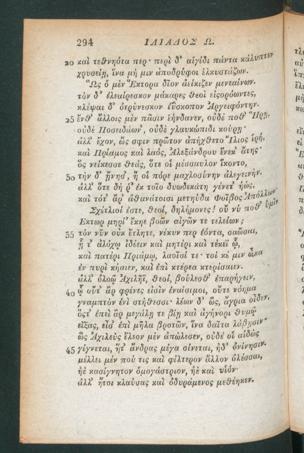 294 ΙΛΙΑΔΟΣ Ω.
20 καὶ τεθνηότα περ· περὶ δ' αἰγίδι πάντα κάλυπτεν
χρυσείῃ, ἵνα μή μιν ἀποδρύφοι ἑλκυστάζων.
Ὣς ὁ μὲν Ἕκτορα δῖον ἀείκιζεν μενεαίνων.
τὸν δ' ἐλεαίρεσκον μάκαρες θεοὶ εἰσορόωντες,
κλέψαι δ' ὀτρύνεσκον ἐΰσκοπον Ἀργειφόντην.
25 ἔνθ' ἄλλοις μὲν πᾶσιν ἑήνδανεν, οὐδέ ποθ' Ἥρῃ,
οὐδὲ Ποσειδάων', οὐδὲ γλαυκώπιδι κούρῃ·
ἀλλ' ἔχον, ὥς σφιν πρῶτον ἀπήχθετο Ἴλιος ἱρή,
καὶ Πρίαμος καὶ λαός, Ἀλεξάνδρου ἕνεκ' ἄτης·
ὃς νείκεσσε θεάς, ὅτε οἱ μέσσαυλον ἵκοντο,
30 τὴν δ' ᾔνησ', ἥ οἱ πόρε μαχλοσύνην ἀλεγεινήν.
ἀλλ' ὅτε δή ῥ' ἐκ τοῖο δυωδεκάτη γένετ' ἠώς,
καὶ τότ' ἄρ' ἀθανάτοισι μετηύδα Φοῖβος Ἀπόλλων·
Σχέτλιοί ἐστε, θεοί, δηλήμονες! οὔ νύ ποθ' ὑμῖν
Ἕκτωρ μηρί' ἔκηε βοῶν αἰγῶν τε τελείων;
35 τὸν νῦν οὐκ ἔτλητε, νέκυν περ ἐόντα, σαῶσαι,
ᾗ τ' ἀλόχῳ ἰδέειν καὶ μητέρι καὶ τέκεϊ ᾧ,
καὶ πατέρι Πριάμῳ, λαοῖσί τε· τοί κέ μιν ὦκα
ἐν πυρὶ κήαιεν, καὶ ἐπὶ κτέρεα κτερίσαιεν.
ἀλλ' ὀλοῷ Ἀχιλῆϊ, θεοί, βούλεσθ' ἐπαρήγειν,
40 ᾧ οὔτ' ἂρ φρένες εἰσὶν ἐναίσιμοι, οὔτε νόημα
γναμπτὸν ἐνὶ στήθεσσι· λέων δ' ὥς, ἄγρια οἶδεν,
ὅστ' ἐπεὶ ἂρ μεγάλῃ τε βίῃ καὶ ἀγήνορι θυμῷ
εἴξας, εἶσ' ἐπὶ μῆλα βροτῶν, ἵνα δαῖτα λάβῃσιν·
ὣς Ἀχιλεὺς ἔλεον μὲν ἀπώλεσεν, οὐδέ οἱ αἰδὼς
45 γίγνεται, ἥτ' ἄνδρας μέγα σίνεται, ἠδ' ὀνίνησιν.
μέλλει μέν πού τις καὶ φίλτερον ἄλλον ὀλέσσαι,
ἠὲ κασίγνητον ὁμογάστριον, ἠὲ καὶ υἱόν·
ἀλλ' ἤτοι κλαύσας καὶ ὀδυράμενος μεθέηκεν.